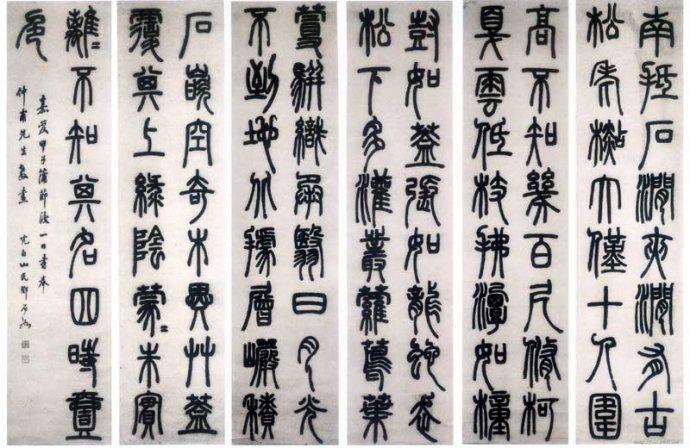 南抵石澗夾澗有古
松老杉大僅十人圍
高不知幾百尺修柯
戛雲低枝拂潭如幢
豎如蓋張如龍蛇走
松下多灌叢蘿蔦葉
蔓駢織承翳日月光
不到地據層巖積
石嵌空奇木異艸蓋
覆其上綠陰蒙〻朱實
離〻不知其名四時壹
色
嘉慶甲子蒲節後一日書奉
仲甫先生 完白山民鄧石如